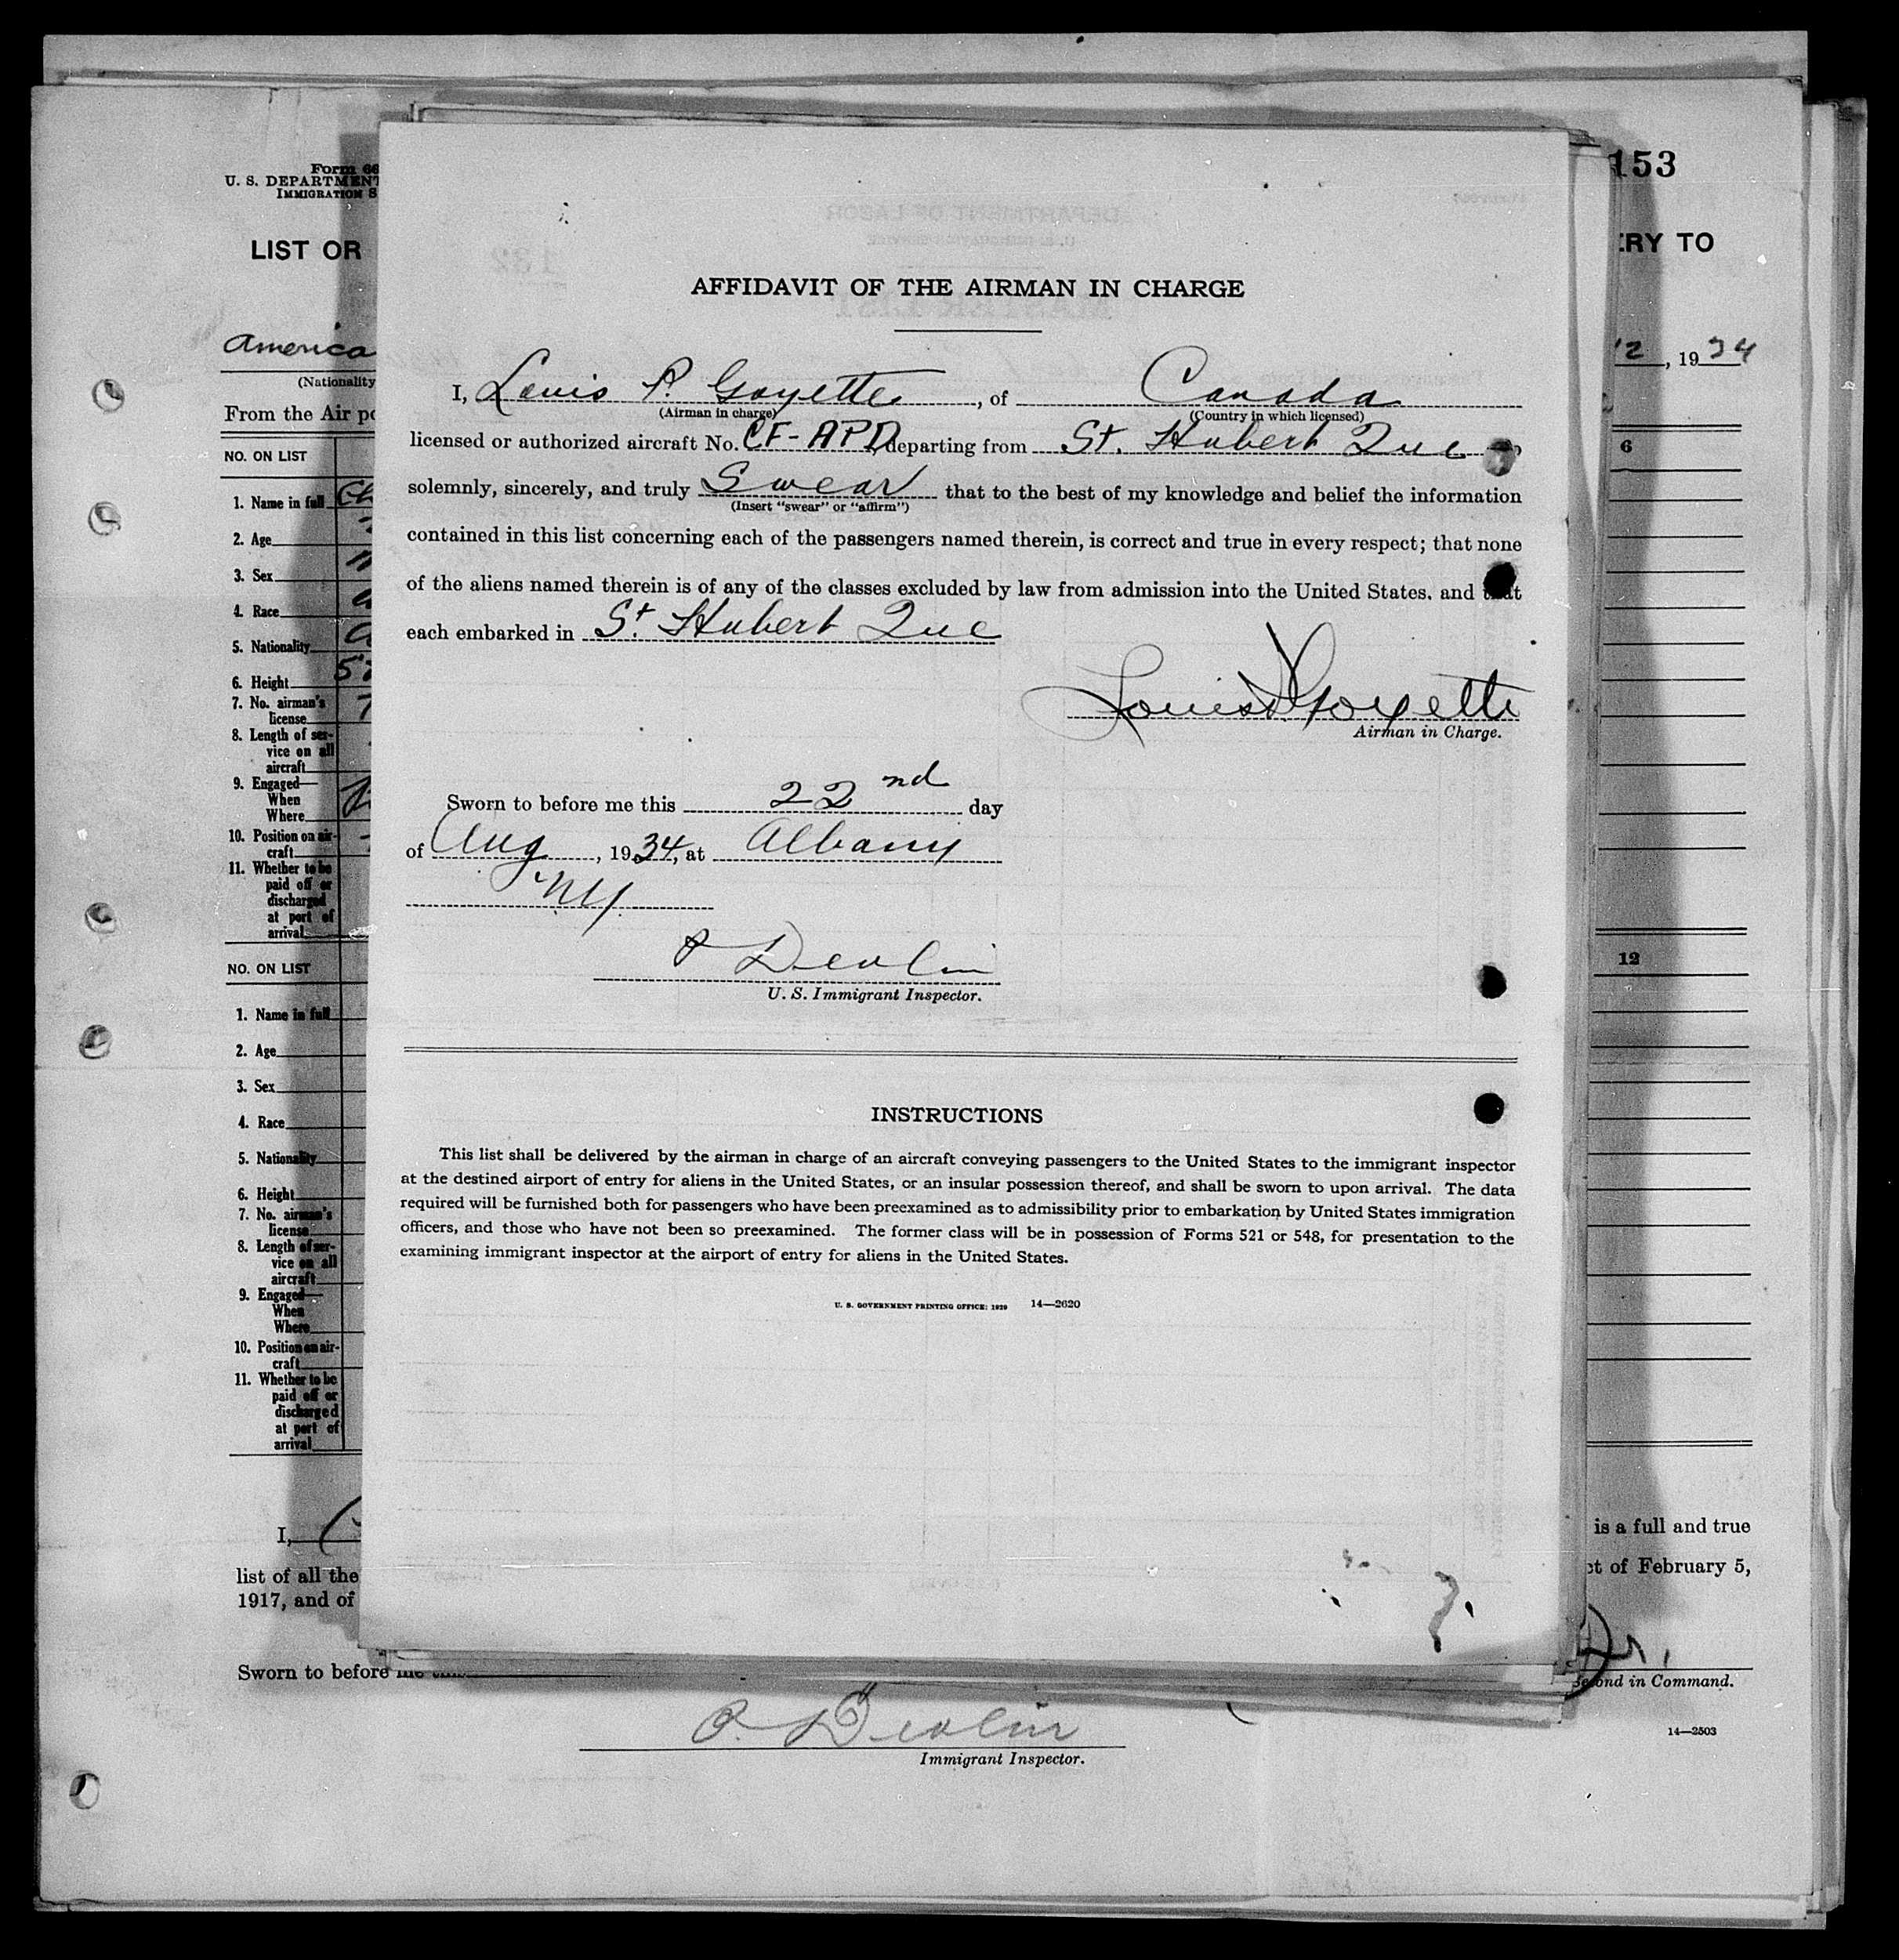 Form 66
U. S. DEPARTMENT
IMMIGRATION S
153
LIST OR
ERY TO
America
(Nationality
12, 1934
From the Air po
NO. ON LIST
6
1. Name in full Ch
2. Age
3. Sex
4. Race
5. Nationality
6. Height
7. No. airman's
license
8. Length of ser-
vice on all
aircraft
9. Engaged—
When
Where
10. Position on air-
craft
11. Whether to be
paid off or
discharged
at port of
arrival
NO. ON LIST
12
1. Name in full
2. Age
3. Sex
4. Race
5. Nationality
6. Height
7. No. airman's
license
8. Length of ser-
vice on all
aircraft
9. Engaged—
When
Where
10. Position on air-
craft
11. Whether to be
paid off or
discharged
at port of
arrival
I,
is a full and true
list of all the
ct of February 5,
1917, and of
Jr.
Sworn to before me this
Second in Command.
P. Devlin
14—2503
Immigrant Inspector.
AFFIDAVIT OF THE AIRMAN IN CHARGE
I, Louis P. Goyette, of Canada
(Airman in charge) (Country in which licensed)
licensed or authorized aircraft No. CF-APD departing from St. Hubert Que
solemnly, sincerely, and truly Swear that to the best of my knowledge and belief the information
(Insert "swear" or "affirm")
contained in this list concerning each of the passengers named therein, is correct and true in every respect; that none
of the aliens named therein is of any of the classes excluded by law from admission into the United States, and that
each embarked in St. Hubert Que
Louis P Goyette
Airman in Charge.
Sworn to before me this 22nd day
of Aug, 1934, at Albany
N.Y.
P Devlin
U. S. Immigrant Inspector.
INSTRUCTIONS
This list shall be delivered by the airman in charge of an aircraft conveying passengers to the United States to the immigrant inspector
at the destined airport of entry for aliens in the United States, or an insular possession thereof, and shall be sworn to upon arrival. The data
required will be furnished both for passengers who have been preexamined as to admissibility prior to embarkation by United States immigration
officers, and those who have not been so preexamined. The former class will be in possession of Forms 521 or 548, for presentation to the
examining immigrant inspector at the airport of entry for aliens in the United States.
U. S. GOVERNMENT PRINTING OFFICE: 1929 14—2620